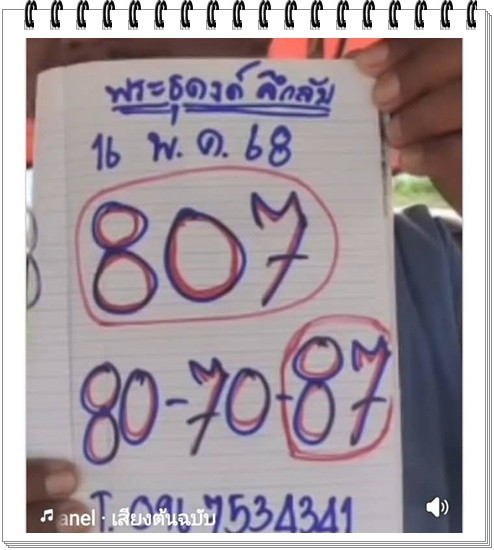 พระธุดงค์ ลึกลับ
16 พ.ค. 68
807
80-70-87
anel · เสียงต้นฉบับ